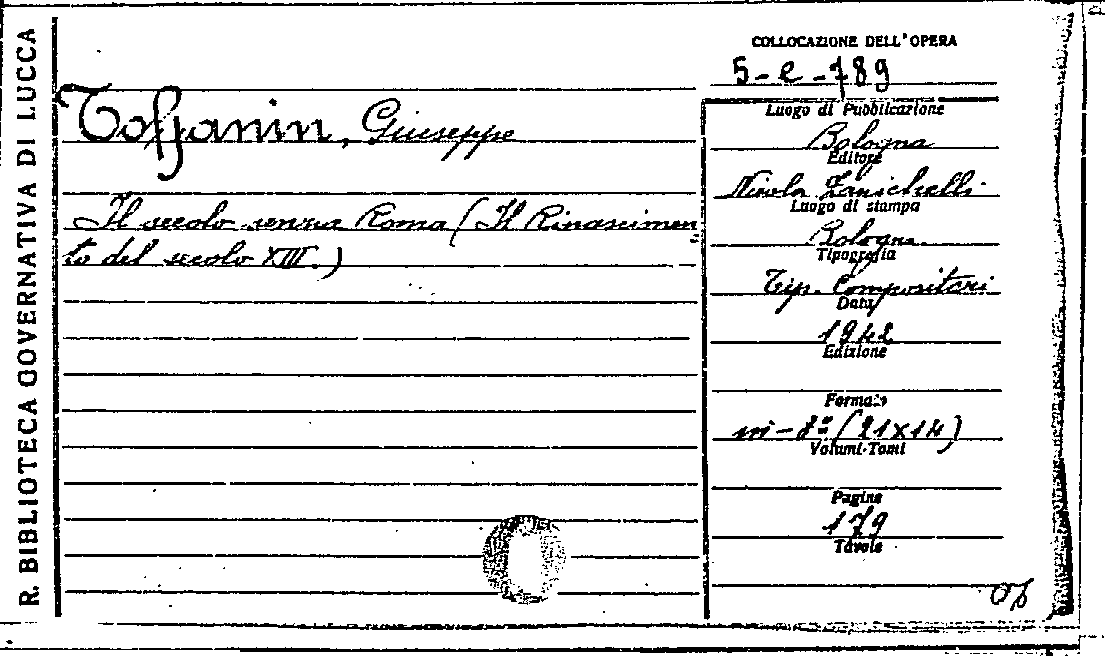 R. BIBLIOTECA GOVERNATIVA DI LUCCA
Toffanin, Giuseppe
Il secolo senza Roma (Il Rinascimen
to del secolo XIII.)
COLLOCAZIONE DELL'OPERA
5-e-789
Luogo di Pubblicazione
Bologna
Editore
Nicola Zanichelli
Luogo di stampa
Bologna
Tipografia
Tip. Compositori
Data
1942
Edizione
Formato
in-8º (21x14)
Volumi-Tomi
Pagine
179
Tavole